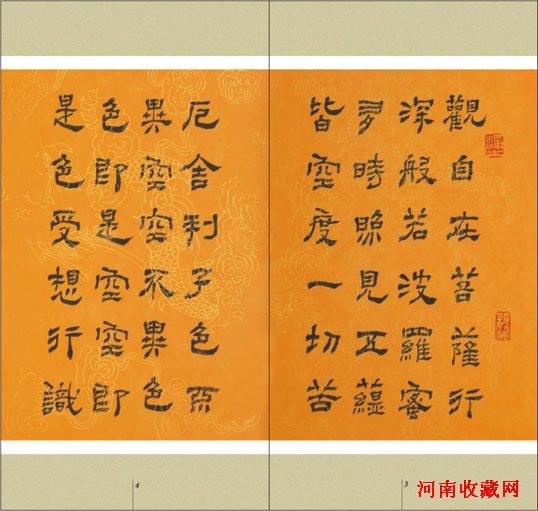 觀自在菩薩行
深般若波羅蜜
多時照見五蘊
皆空度一切苦
3
厄舍利子色不
異空空不異色
色即是空空即
是色受想行識
4
河南收藏网